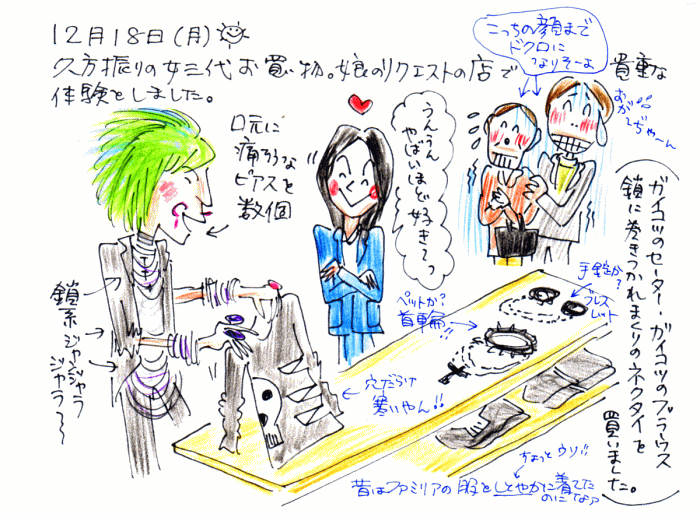 12月18日(月)
久方振りの女三代お買い物。娘のリクエストの店で貴重な
体験をしました。
こっちの顔まで
ドクロに
なりそーよ
おがーぢゃーん
口元に
痛そうな
ピアスを
数個
うんうん
やばいほど
好き〜っ
ガイコツのセーター・ガイコツのブラウス
鎖に巻きつかれまくりのネクタイを
買いました。
手錠か?
ブレス
レット
ペットか?
首輪
鎖系ジャラ
ジャラ
ジャラ〜
穴だらけ
寒いやん!!
ちょっとウソ!!
昔はファミリアの服をしとやかに着てた
のになァ